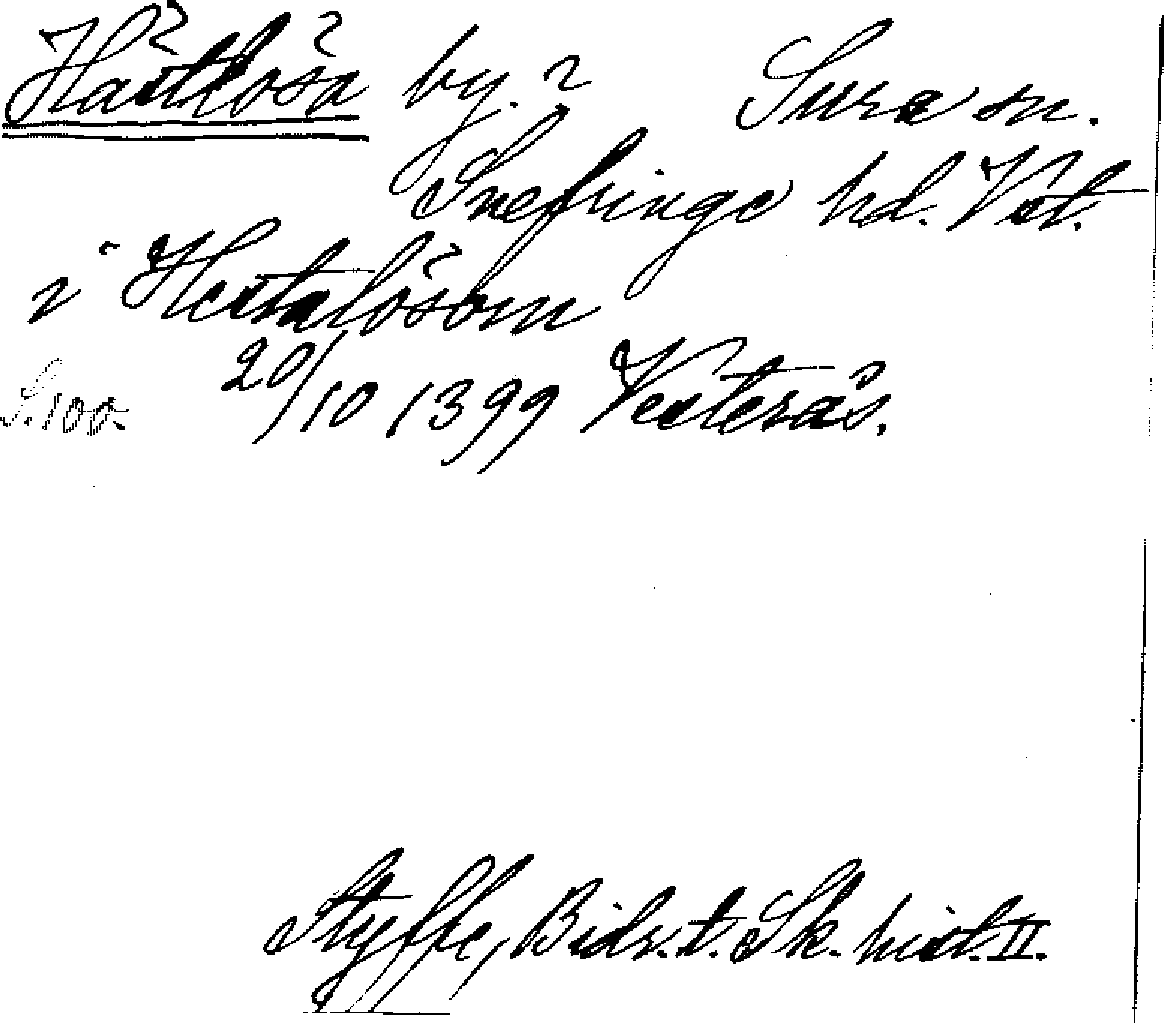 Hästlösa by. 2 Sura sn.
Snefringe hd. Vstl.
i Hestalösom
S. 100. 20/10 1399 Vesterås.
Styffe, Bidr. t. Sk. hist. II.